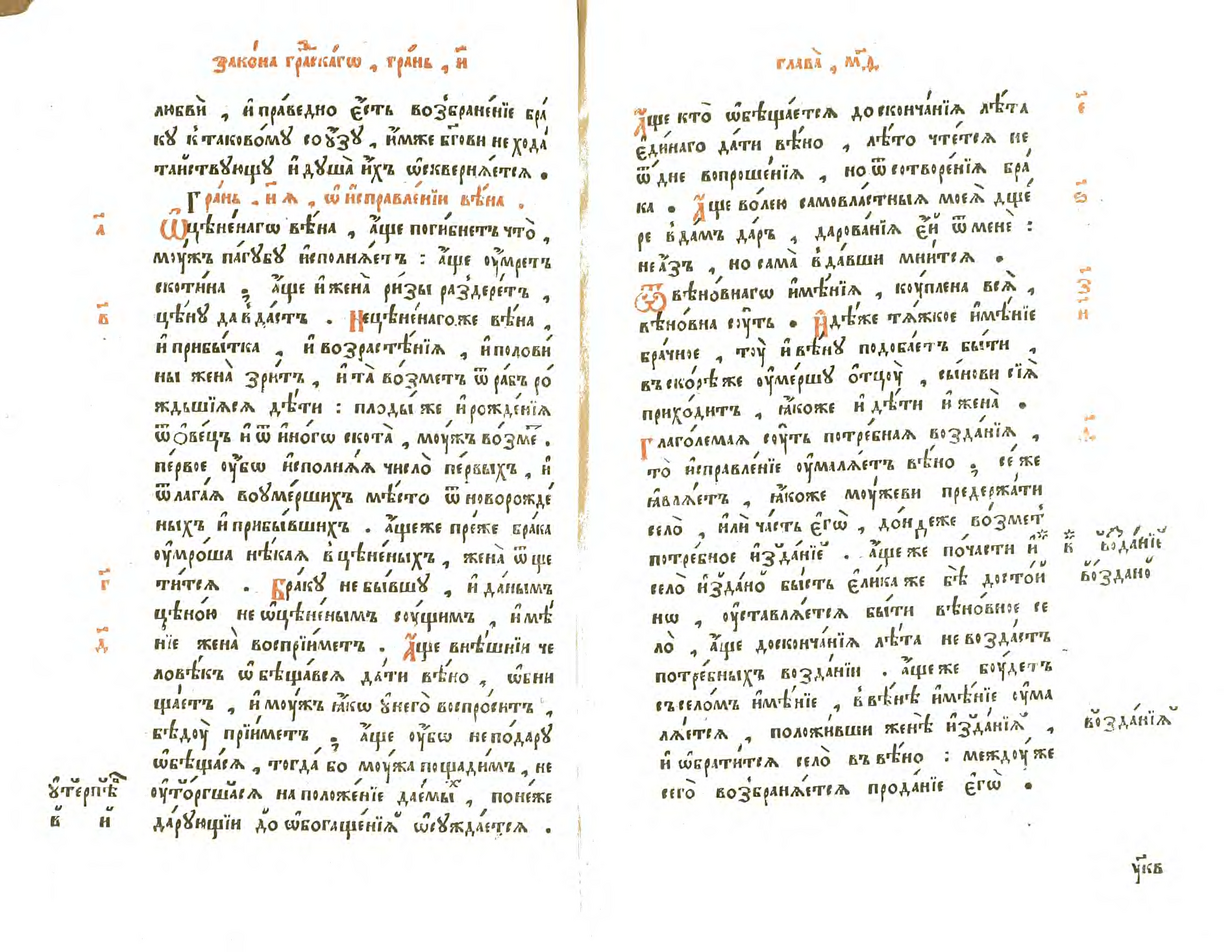 зако́на гра́дскагѡ , гра́нь , и҃
любвѝ , и҆ пра́ведно є҆́сть возбране́нїе бра́
кꙋ к̾ таково́мꙋ сою́зꙋ , и҆́мже бг҃ови не хода́
та́йствꙋющꙋ и҆ дꙋша̀ и҆́хъ ѡ҆сквернѧ́етсѧ .
Гра́нь . и҃ ѧ , ѡ҆ и҆справле́нїи вѣ́на .
а҃
Ѿцѣне́нагѡ вѣ́на , а҆́ще поги́бнетъ что̀ ,
мꙋ́жъ па́гꙋбꙋ и҆сполнѧ́етъ : а҆́ще ᲂу҆́мретъ
скоти́на ; а҆́ще и҆ жена̀ ри́зы раздере́тъ ,
в҃
цѣ́нꙋ да вда́стъ . Нецѣне́нагоже вѣ́на ,
и҆ прибы́тка , и҆ возрасте́нїѧ , и҆ полови́
ны жена̀ зри́тъ , и҆ та̀ во́зметъ ѿ ра́бъ ро́
ждьшїѧсѧ дѣ́ти : плоды́ же и҆ рожде́нїѧ
ѿ ѻ҆ве́цъ и҆ ѿ и҆но́гѡ скота̀ , мꙋ́жъ во́зме .
пе́рвое ᲂу҆́бѡ и҆сполнѧ́ѧ число̀ пе́рвыхъ , и҆
ѿлага́ѧ во ᲂу҆ме́ршихъ мѣ́сто ѿ новорожде́
ныхъ и҆ прибы́вшихъ . а҆́щеже пре́же бра́ка
ᲂу҆мро́ша нѣ́каѧ в̾цѣне́ныхъ , жена̀ ѿще
г҃
ти́тсѧ . Бра́кꙋ не бы́вшꙋ , и҆ да́нымъ
цѣно́ю не ѡ҆цѣне́нымъ сꙋ́щимъ , и҆мѣ́
д҃
нїе жена̀ воспрїи́метъ . А҆́ще внѣ́шнїи че
ловѣ́къ ѡ҆бѣща́всѧ да́ти вѣ́но , ѡ҆бни
ща́етъ , и҆ мꙋ́жъ ꙗ҆́кѡ ᲂу҆ него̀ воспро́ситъ ,
бѣдꙋ̀ прїи́метъ ; а҆́ще ᲂу҆́бѡ не по да́рꙋ
ѡ҆бѣща́сѧ , тогда́ бо мꙋ́жа пощади́мъ , не
ᲂу҆то́ргшасѧ на положе́нїе дае́мых , поне́же
да́рꙋющїи до ѡ҆богаще́нїѧ ѡ҆сꙋжда́етсѧ .
ᲂу҆терпѣ́в
в и҆
глава̀ , м҃д
є҃
А҆́ще кто̀ ѡ҆бѣща́етсѧ до сконча́нїѧ лѣ́та
є҆ди́наго да́ти вѣ́но , лѣ́то чте́тсѧ не
ѿ дне вопроше́нїѧ , но ѿ сотворе́нїѧ бра́
ѕ҃
ка . А҆́ще во́лею самовла́стныѧ моеѧ̀ дще́
ре вда́мъ да́ръ , дарова́нїѧ є҆́й ѿ менѐ :
не а҆́зъ , но сама̀ вда́вши мни́тсѧ .
з҃
Ѿ вѣно́внагѡ и҆мѣ́нїѧ , кꙋ́плена всѧ̀ ,
и҃
вѣно́вна сꙋ́ть . И҆дѣ́же тѧ́жкое и҆мѣ́нїе
бра́чное , тꙋ̀ и҆ вѣ́нꙋ подоба́етъ бы́ти ,
въ ско́рѣже ᲂу҆ме́ршꙋ ѻ҆тцꙋ̀ , сы́нови сїѧ̀
прихо́дитъ , ꙗ҆́коже и҆ дѣ́ти и҆ жена̀ .
Глаго́лемаѧ сꙋ́ть потре́бнаѧ возда́нїѧ ,
то̀ и҆справле́нїе ᲂу҆малѧ́етъ вѣ́но ; се́ же
ꙗ҆влѧ́етъ , ꙗ҆́коже мꙋ́жеви предержа́ти
село̀ , и҆лѝ ча́сть є҆гѡ̀ , до́ндеже во́змет
потре́бное и҆зда́нїе . а҆́щеже по ча́сти и҆
село̀ и҆здано̀ бы́сть є҆ли́каже бѣ̀ досто́й
нѡ , ᲂу҆ставлѧ́етсѧ бы́ти вѣно́вное се
ло̀ , а҆́ще до сконча́нїѧ лѣ́та не возда́стъ
потре́бныхъ возда́нїи . а҆́щеже бꙋ́детъ
съ село́мъ и҆мѣ́нїе , в̾ вѣ́нѣ и҆мѣ́нїе ᲂу҆ма
лѧ́етсѧ , положи́вши женѣ̀ и҆зда́нїѧ ,
и҆ ѡ҆брати́тсѧ село̀ въ вѣ́но : междꙋ́же
сего̀ возбранѧ́етсѧ прода́нїе є҆гѡ̀ .
в возда́нїе
во́здано
возда́нїѧ
ᲂу҆к҃в